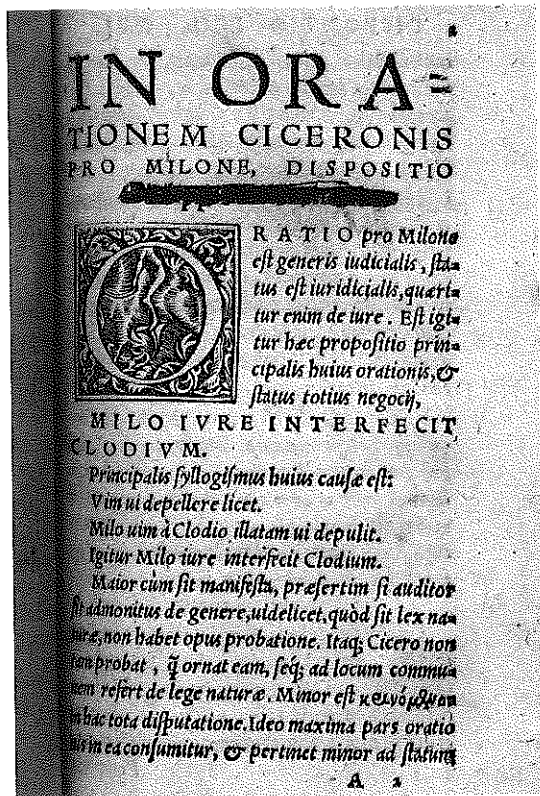 2
IN ORA=
TIONEM CICERONIS
PRO MILONE, DISPOSITIO
ORATIO pro Milone
est generis iudicialis, sta-
tus est iuridicialis, quæri-
tur enim de iure. Est igi-
tur hæc propositio prin-
cipalis huius orationis, &
status totius negocij,
MILO IVRE INTERFECIT
CLODIVM.
Principalis syllogismus huius causæ est:
Vim ui depellere licet.
Milo uim à Clodio illatam ui depulit.
Igitur Milo iure interfecit Clodium.
Maior cum sit manifesta, præsertim si auditor
sit admonitus de genere, uidelicet, quòd sit lex na-
turæ, non habet opus probatione. Itaq; Cicero non
tam probat, q̃ ornat eam, seq; ad locum commu-
nem refert de lege naturæ. Minor est κρινόμενον
in hac tota disputatione. Ideo maxima pars oratio
nis in ea consumitur, & pertinet minor ad statum
A 2